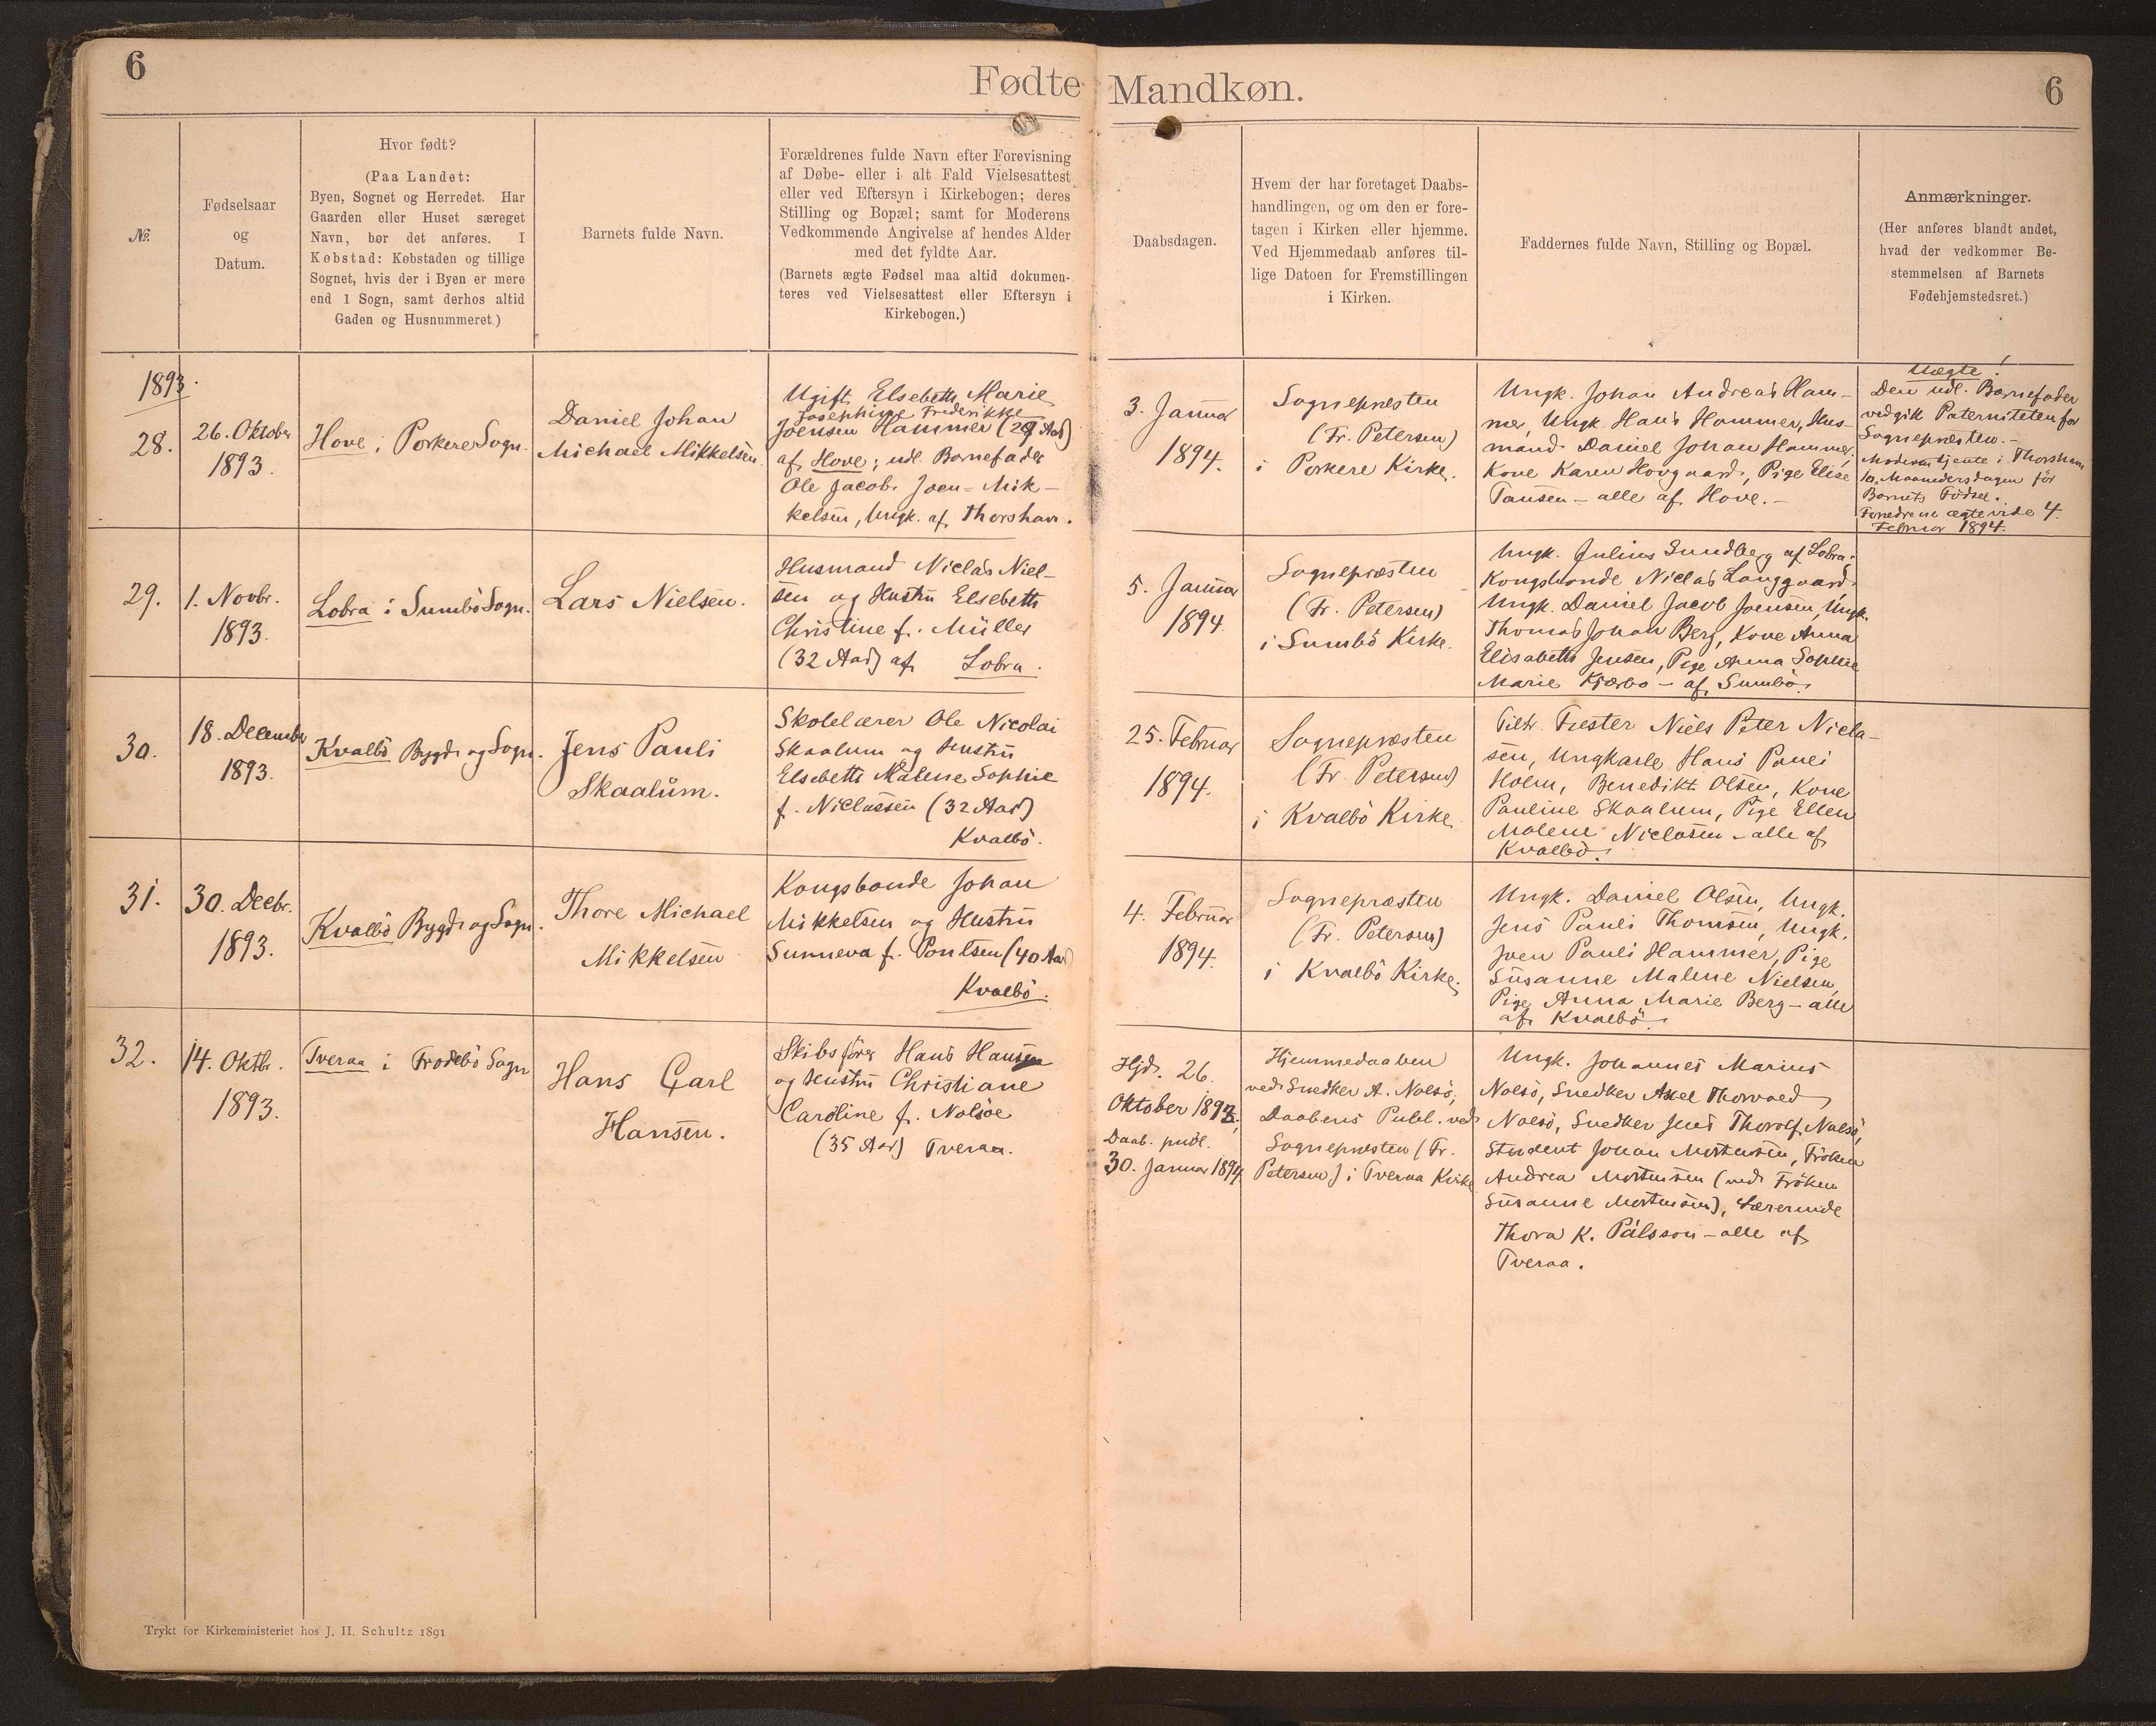 6
Fødte Mandkøn.
6
№.
Fødselsaar
og
Datum.
Hvor født?
(Paa Landet:
Byen, Sognet og Herredet. Har
Gaarden eller Huset særeget
Navn, bør det anføres. I
Købstad: Købstaden og tillige
Sognet, hvis der i Byen er mere
end 1 Sogn, samt derhos altid
Gaden og Husnummeret.)
Barnets fulde Navn.
Forældrenes fulde Navn efter Forevisning
af Døbe- eller i alt Fald Vielsesattest
eller ved Eftersyn i Kirkebogen; deres
Stilling og Bopæl; samt for Moderens
Vedkommende Angivelse af hendes Alder
med det fyldte Aar.
(Barnets ægte Fødsel maa altid dokumen-
teres ved Vielsesattest eller Eftersyn i
Kirkebogen.)
Daabsdagen.
Hvem der har foretaget Daabs-
handlingen, og om den er fore-
tagen i Kirken eller hjemme.
Ved Hjemmedaab anføres til-
lige Datoen for Fremstillingen
i Kirken.
Faddernes fulde Navn, Stilling og Bopæl.
Anmærkninger.
(Her anføres blandt andet,
hvad der vedkommer Be-
stemmelsen af Barnets
Fødehjemstedsret.)
1893.
28.
26. Oktober
1893.
Hove i Porkere Sogn.
Daniel Johan
Michael Mikkelsen.
Ugift Elsebeth Marie
Josephine Frederikke
Joensen Hammer (29 Aar)
af Hove; udl. Barnefader
Ole Jacob Joen Mik-
kelsen, Ungk. af Thorshavn.
3. Januar
1894.
Sognepræsten
(Fr. Petersen)
i Porkere Kirke.
Ungk. Johan Andreas Ham-
mer, Ungk. Hans Hammer, Hus-
mand Daniel Johan Hammer,
Kone Karen Hovgaard, Pige Elise
Tausen - alle af Hove. -
Uægte!
Den udl. Barnefader
vedgik Paterniteten for
Sognepræsten. -
Moderen tjente i Thorshavn
10 Maanedersdagen før
Barnets Fødsel.
Forældrene ægteviede 4.
Februar 1894.
29.
1. Novbr.
1893.
Lobra i Sumbö Sogn.
Lars Nielsen.
Husmand Niclas Niel-
sen og Hustru Elsebeth
Christine f. Müller
(32 Aar) af Lobra.
5. Januar
1894.
Sognepræsten
(Fr. Petersen)
i Sumbö Kirke.
Ungk. Julius Sundberg af Lobra;
Kongsbonde Niclas Langgaard,
Ungk. Daniel Jacob Joensen, Ungk.
Thomas Johan Berg, Kone Anna
Elisabeth Jensen, Pige Anna Sophie
Marie Kjærbo - af Sumbö.
30.
18. December
1893.
Kvalbö Bygd og Sogn.
Jens Pauli
Skaalum.
Skolelærer Ole Nicolai
Skaalum og Hustru
Elsebeth Malene Sophie
f. Niclassen (32 Aar)
Kvalbö.
25. Februar
1894.
Sognepræsten
(Fr. Petersen)
i Kvalbö Kirke.
Fæster Niels Peter Nicla-
sen, Ungkarle Hans Pauli
Holm, Benedikt Olsen, Kone
Pauline Skaalum, Pige Ellen
Malene Niclasen - alle af
Kvalbö.
31.
30. Decbr.
1893.
Kvalbö Bygd og Sogn.
Thore Michael
Mikkelsen
Kongsbonde Johan
Mikkelsen og Hustru
Sunneva f. Poulsen (40 Aar)
Kvalbö.
4. Februar
1894.
Sognepræsten
(Fr. Petersen)
i Kvalbö Kirke.
Ungk. Daniel Olsen, Ungk.
Jens Pauli Thomsen, Ungk.
Joen Pauli Hammer, Pige
Susanne Malene Nielsen,
Pige Anna Marie Berg - alle
af Kvalbö.
32.
14. Oktbr.
1893.
Tveraa i Frodebö Sogn
Hans Carl
Hansen.
Skibsfører Hans Hansen
og Hustru Christiane
Caroline f. Nolsöe
(35 Aar) Tveraa.
Hjd. 26.
Oktober 1893;
Daab. publ.
30. Januar 1894
Hjemmedaaben
ved Snedker A. Nolsö;
Daabens Publ. ved
Sognepræsten (Fr.
Petersen) i Tveraa Kirke
Ungk. Johannes Marius
Nolsö, Snedker Axel Thorvald
Nolsö, Snedker Jens Thorolf Nolsö,
Student Johan Mortensen, Fröken
Andrea Mortensen (ved Fröken
Susanne Mortensen), Lærerinde
Thora K. Pálsson - alle af
Tveraa.
Trykt for Kirkeministeriet hos J. H. Schultz 1891